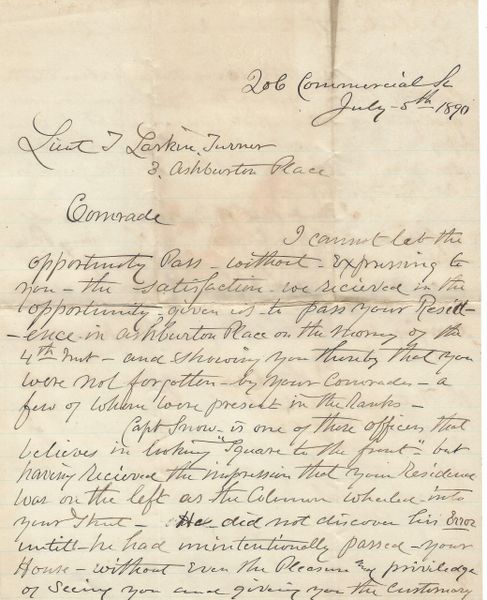 206 Commercial St
July - 5th 1890
Lieut T Larkin Turner
3. Ashburton Place
Comrade
I cannot let the
opportunity Pass - without - Expressing to
you - the - satisfaction - we recieved in the
opportunity, given us to pass your Resid-
-ence in Ashburton Place on the morning of the
4th Inst - and showing you thereby that you
were not forgotten - by your Comrades - a
few of whom were present in the ranks -
Capt Snow - is one of those officers that
believes in looking "Square to the front" - but
having recieved the impression that your Residence
was on the left as the Column wheeled into
your Street - He did not discover his Error
untill - he had unintentionally passed - your
House - without Even the Pleasure and priviledge
of Seeing you and giving you the Customary